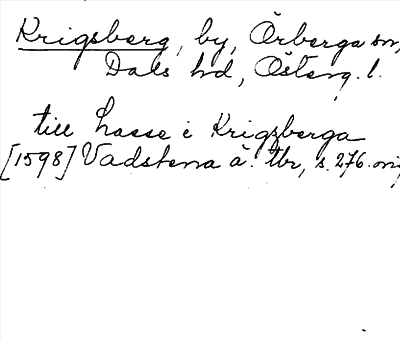 Krigsberg, by, Örberga sn,
Dals hd, Österg. l.
till hasse i Krigzberga
[1598] Vadstena ä. tbr, s. 276. orig